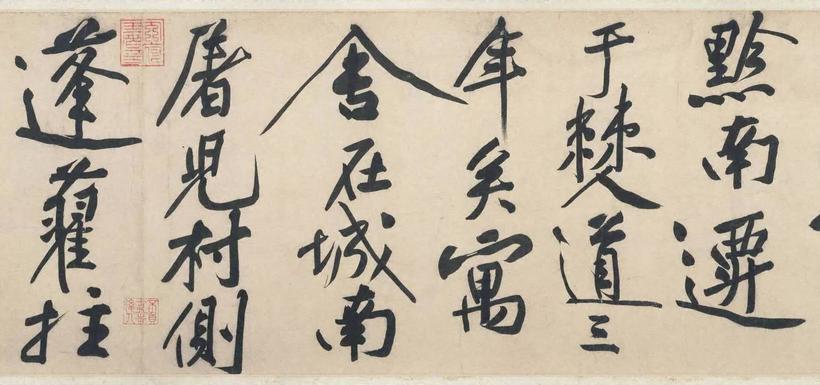 黔南遷
于僰道三
年矣寓
舍在城南
屠兒村側
蓬藋拄